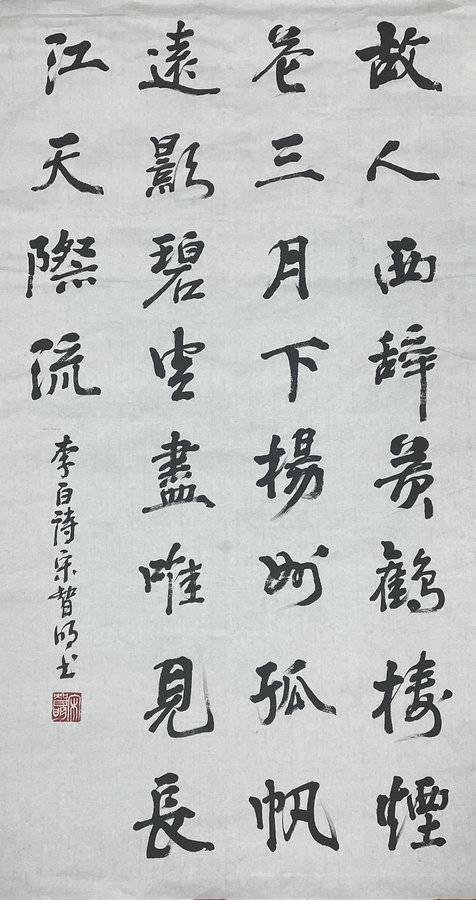 故人西辞黄鶴楼煙
花三月下揚州孤帆
遠影碧空盡唯見長
江天際流
李白詩宋明书